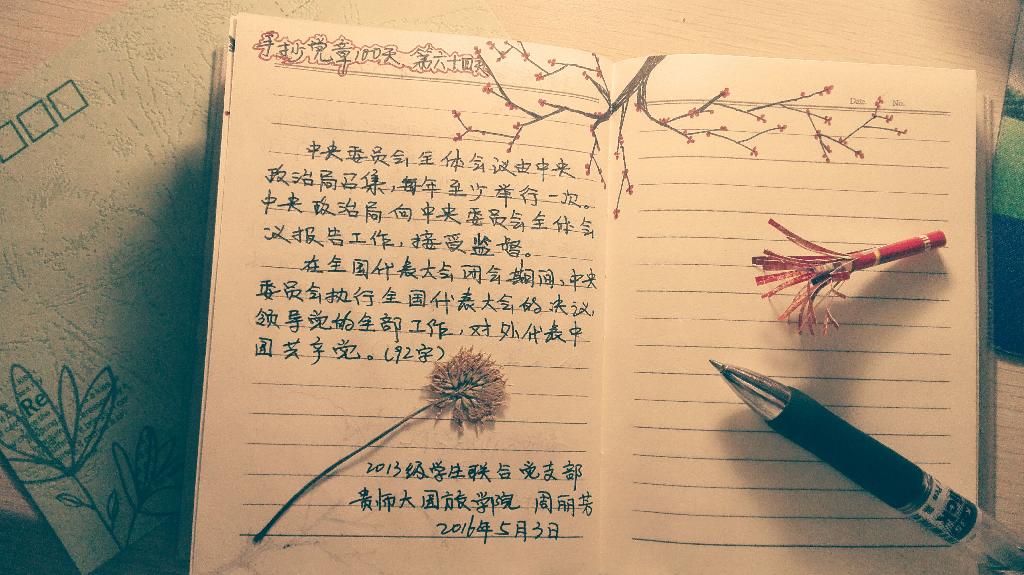 手抄党章100天 第六十四天
Date. No.
中央委员会全体会议由中央
政治局召集，每年至少举行一次。
中央政治局向中央委员会全体会
议报告工作，接受监督。
在全国代表大会闭会期间，中央
委员会执行全国代表大会的决议，
领导党的全部工作，对外代表中
国共产党。(192字)
2013级学生联合党支部
贵师大国旅学院 周丽芳
2016年5月3日
Re